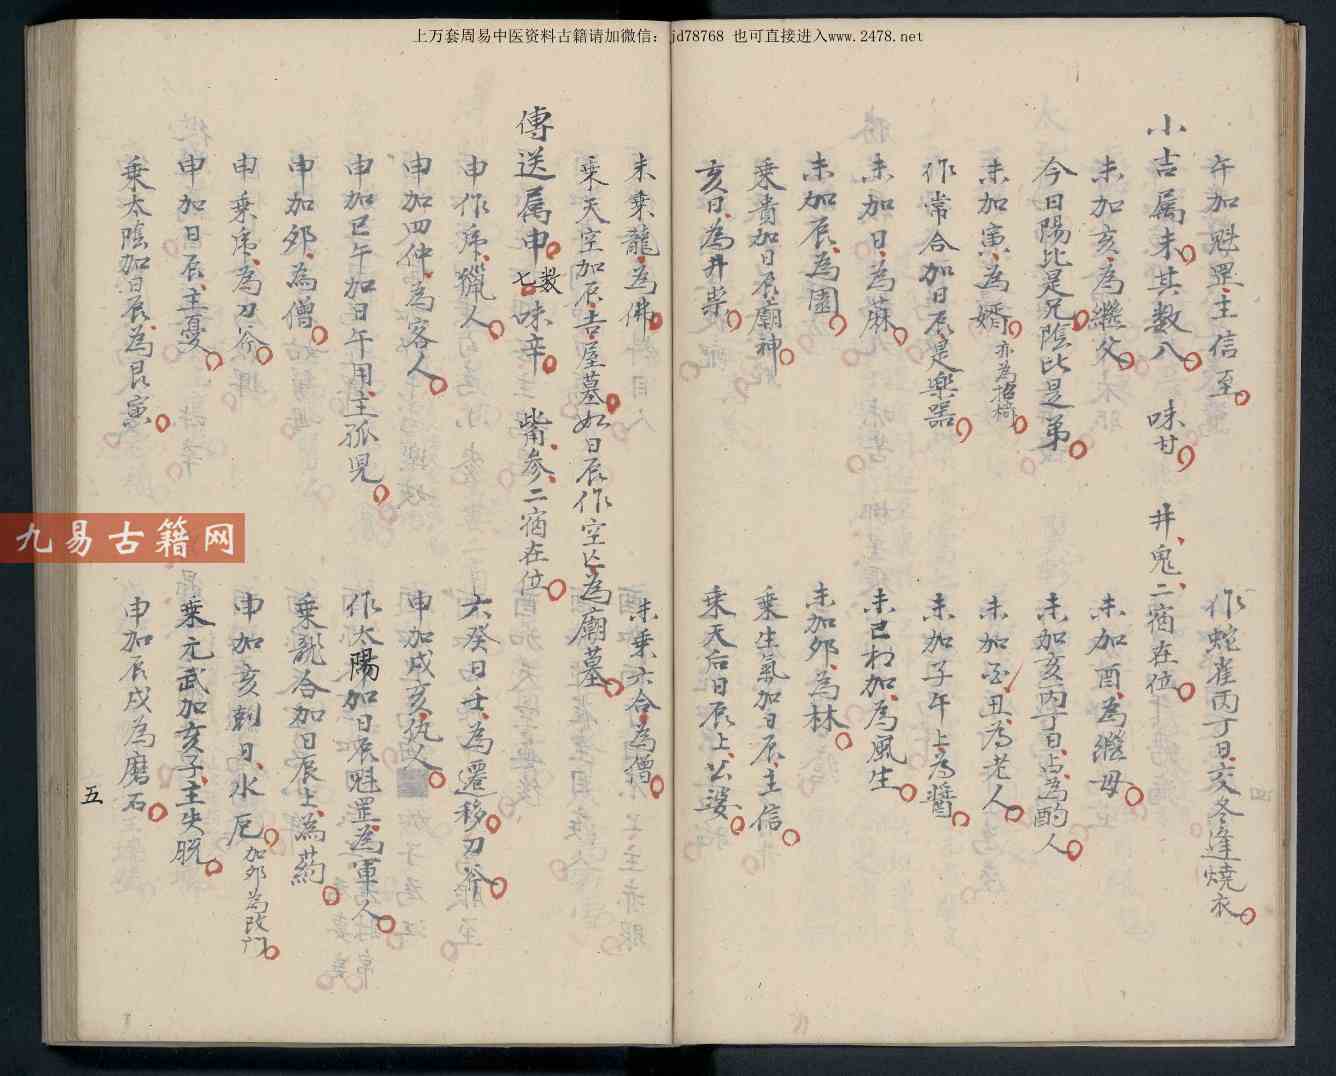 上万套周易中医资料古籍请加微信：jd78768 也可直接进入www.2478.net
午加魁罡主信至 作蛇雀丙丁日交冬逢燒衣
小吉属未其数八 味甘 井鬼二宿在位
未加亥為繼父 未加酉為繼母
今日陽比是兄陰比是弟 未加亥丙丁日占為酌人
未加寅為婿 未加丑為老人
作常合加日辰是樂器 未加子午上為醬
未加日為麻 未已相加為風生
未加辰為園 未加卯為林
乘貴加日辰廟神 乘生氣加日辰主信
亥日為井 乘天后日辰上公婆
未乘龍為佛 未乘六合為僧
乘天空加辰吉屋墓如日辰作空亡為廟墓
傳送属申 数七 味辛 觜參二宿在位
申作虎獵人 六癸日壬為遷移刀斧
申加四仲為客人 申加戌亥
申加巳午加日午用主孤兒 作太陽加日辰魁罡為軍人
申加卯為僧 乘龍合加日辰上為葯
申乘虎為刀斧 申加亥朝日水厄 加卯為改門
申加日辰主憂 乘元武加亥子主失脱
乘太陰加日辰為 申加辰戌為磨石
五
九易古籍网